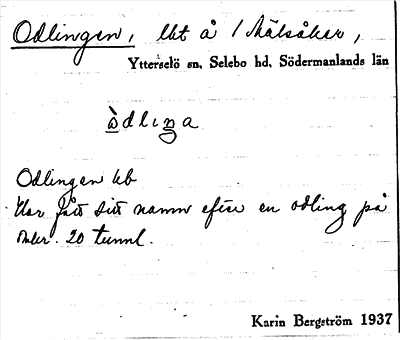 Odlingen, lht å 1 Mälsåker,
Ytterselö sn, Selebo hd, Södermanlands län
òdliŋa
Odlingen ub
Har fått sitt namn efter en odling på
20 tunnl.
Karin Bergström 1937